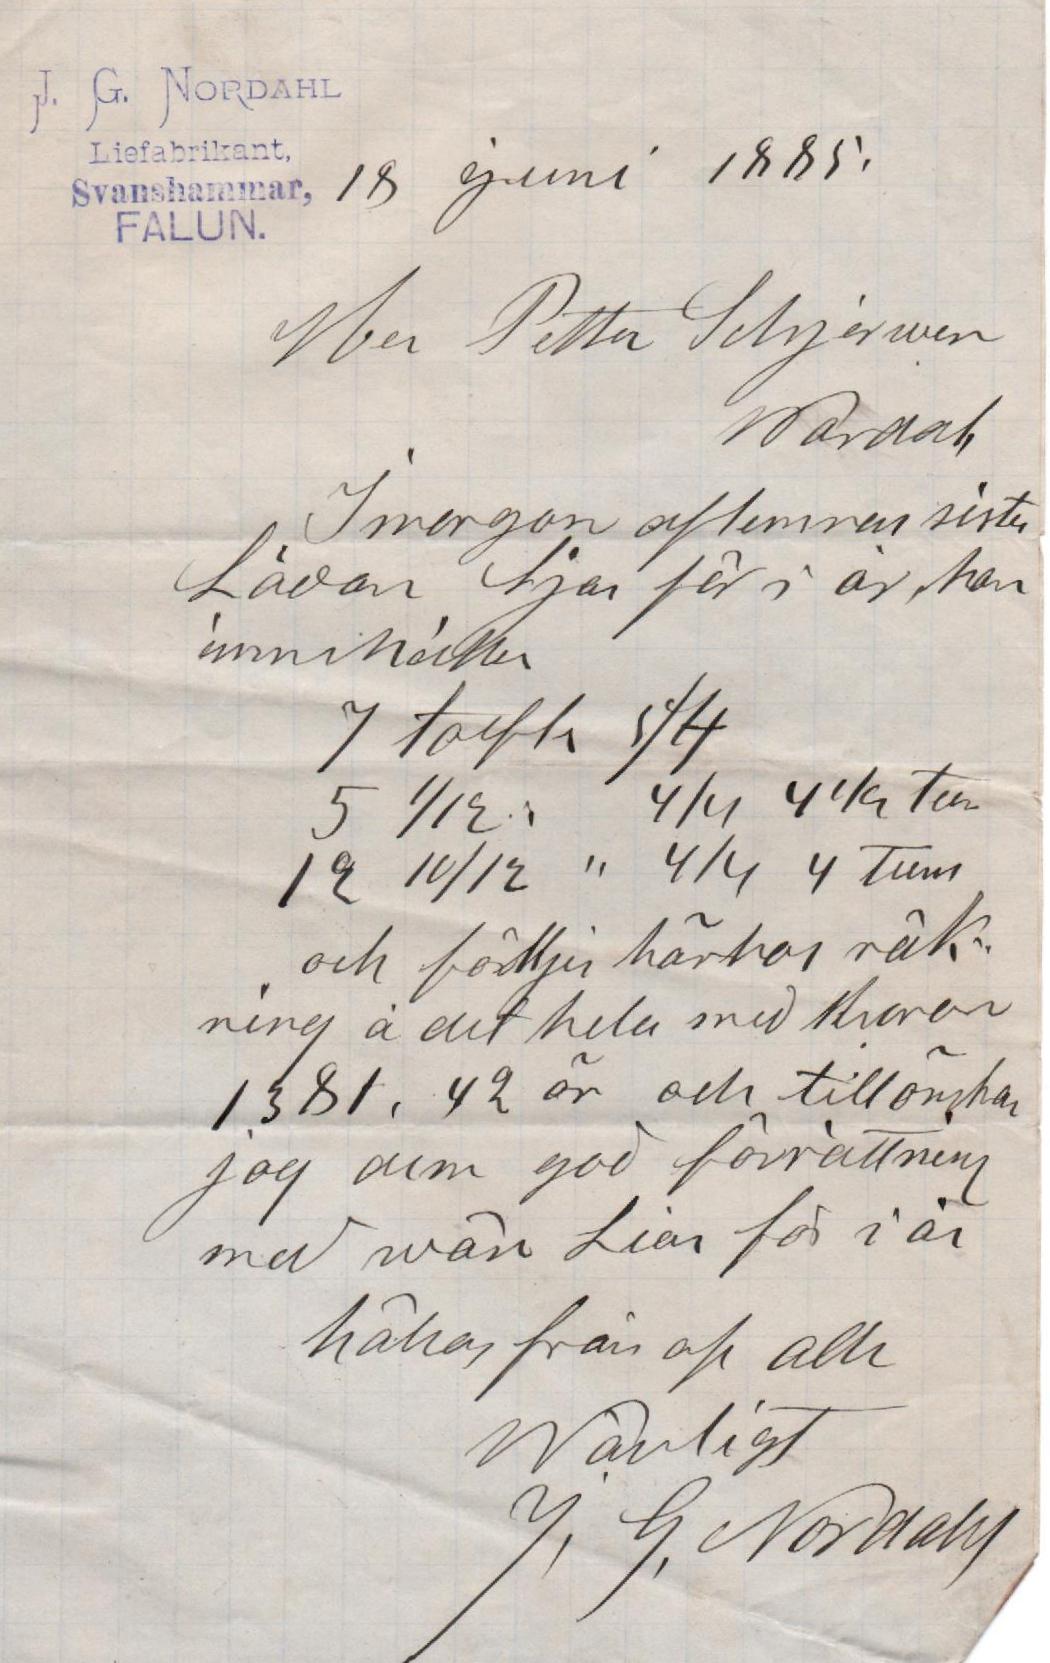 J. G. NORDAHL
Liefabrikant,
Svanshammar,
FALUN.
18 juni 1885.
Her Petter Schjerwen
Wardal,
I morgon sista
Lådan Ljar för i år, han
innehåller
7 tolfter 5/4
5 1/12 " 4/4 4 1/2 tum
12 10/12 " 4/4 4 tum
och följer härhos räk-
ning å det hela med kronor
1381, 42 ör och tillönskar
jag dem god förrättning
med wåra Liar för i år
hälsas från oss alla
Wänligt
J. G. Nordahl